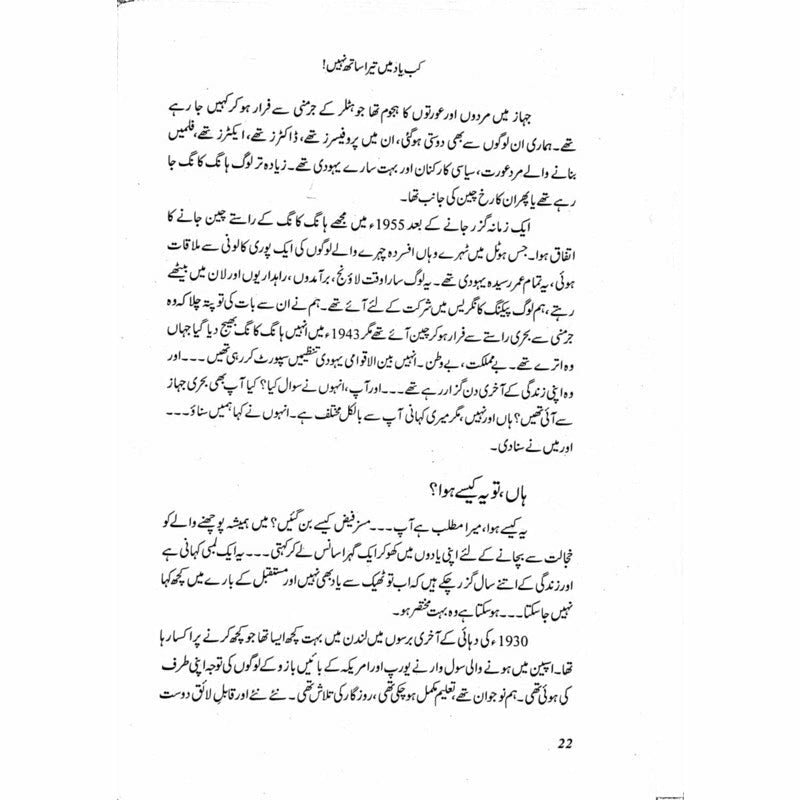 کب یاد میں تیرا ساتھ نہیں!
جہاز میں مردوں اور عورتوں کا ہجوم تھا جو ہٹلر کے جرمنی سے فرار ہو کر کہیں جا رہے
تھے۔ ہماری ان لوگوں سے بھی دوستی ہو گئی، ان میں پروفیسرز تھے، ڈاکٹرز تھے، ایکٹرز تھے، فلمیں
بنانے والے مرد عورت، سیاسی کارکنان اور بہت سارے یہودی تھے۔ زیادہ تر لوگ ہانگ کانگ جا
رہے تھے یا پھر ان کا رخ چین کی جانب تھا۔
ایک زمانہ گزر جانے کے بعد 1955ء میں مجھے ہانگ کانگ کے راستے چین جانے کا
اتفاق ہوا۔ جس ہوٹل میں ٹہرے وہاں افسردہ چہرے والے لوگوں کی ایک پوری کالونی سے ملاقات
ہوئی، یہ تمام عمر رسیدہ یہودی تھے۔ یہ لوگ سارا وقت لاؤنج، برآمدوں، راہداریوں اور لان میں بیٹھے
رہتے، ہم لوگ پیکنگ کانگریس میں شرکت کے لئے آئے تھے۔ ہم نے ان سے بات کی تو پتہ چلا کہ وہ
جرمنی سے بحری راستے سے فرار ہو کر چین آئے تھے مگر 1943ء میں انہیں ہانگ کانگ بھیج دیا گیا جہاں
وہ اترے تھے۔ بے مملکت، بے وطن۔ انہیں بین الاقوامی یہودی تنظیمیں سپورٹ کر رہی تھیں ۔۔۔ اور
وہ اپنی زندگی کے آخری دن گزار رہے تھے ۔۔۔ اور آپ، انہوں نے سوال کیا؟ کیا آپ بھی بحری جہاز
سے آئی تھیں؟ ہاں اور نہیں، مگر میری کہانی آپ سے بالکل مختلف ہے۔ انہوں نے کہا ہمیں سناؤ ۔۔۔
اور میں نے سنا دی۔
ہاں، تو یہ کیسے ہوا؟
یہ کیسے ہوا، میرا مطلب ہے آپ ۔۔۔ مسز فیض کیسے بن گئیں؟ میں ہمیشہ پوچھنے والے کو
خجالت سے بچانے کے لئے اپنی یادوں میں کھو کر ایک گہرا سانس لے کر کہتی ۔۔۔ یہ ایک لمبی کہانی ہے
اور زندگی کے اتنے سال گزر چکے ہیں کہ اب تو ٹھیک سے یاد بھی نہیں اور مستقبل کے بارے میں کچھ کہا
نہیں جا سکتا ۔۔۔ ہو سکتا ہے وہ بہت مختصر ہو۔
1930ء کی دہائی کے آخری برسوں میں لندن میں بہت کچھ ایسا تھا جو کچھ کرنے پر اکسا رہا
تھا۔ اسپین میں ہونے والی سول وار نے یورپ اور امریکہ کے بائیں بازو کے لوگوں کی توجہ اپنی طرف
کی ہوئی تھی۔ ہم نوجوان تھے، تعلیم مکمل ہو چکی تھی، روزگار کی تلاش تھی۔ نئے نئے اور قابل لائق دوست
22